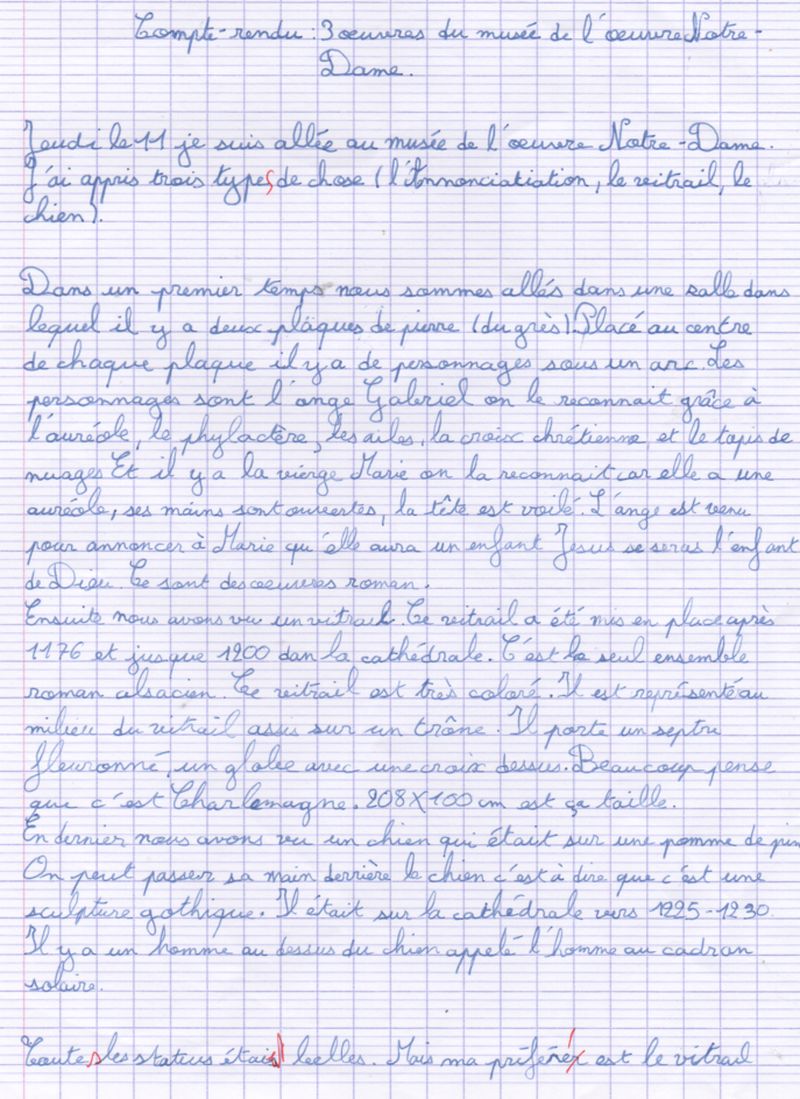 Compte-rendu : 3 oeuvres du musée de l'oeuvre Notre-
Dame.
Jeudi le 11 je suis allée au musée de l'oeuvre Notre-Dame.
J'ai appris trois types de chose (l'Annonciatiation, le vitrail, le
chien).
Dans un premier temps nous sommes allés dans une salle dans
lequel il y a deux plaques de pierre (du grès). Placé au centre
de chaque plaque il y a de personnages sous un arc. Les
personnages sont l'ange Gabriel on le reconnait grâce à
l'auréole, le phylactère, les ailes, la croix chrétienne et le tapis de
nuages Et il y a la vierge Marie on la reconnait car elle a une
auréole, ses mains sont ouvertes, la tête est voilé. L'ange est venu
pour annoncer à Marie qu'elle aura un enfant Jesus se seras l'enfant
de Dieu. Ce sont des oeuvres roman.
Ensuite nous avons vu un vitrail. Ce vitrail a été mis en place après
1176 et jusque 1200 dan la cathédrale. C'est le seul ensemble
roman alsacien. Ce vitrail est très coloré. Il est représenté au
milieu du vitrail assis sur un trône. Il porte un septre
fleuronné, un globe avec une croix dessus. Beaucoup pense
que c'est Charlemagne. 208X100 cm est ça taille.
En dernier nous avons vu un chien qui était sur une pomme de pin
On peut passer sa main derrière le chien c'est à dire que c'est une
sculpture gothique. Il était sur la cathédrale vers 1225-1230.
Il y a un homme au dessus du chien appelé l'homme au cadran
solaire.
Toutes les status étais belles. Mais ma préféré est le vitrail